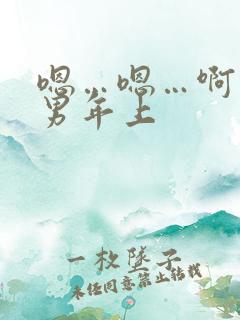 嗯…嗯…啊
男年上
一枚墜子
未经同意禁止转载